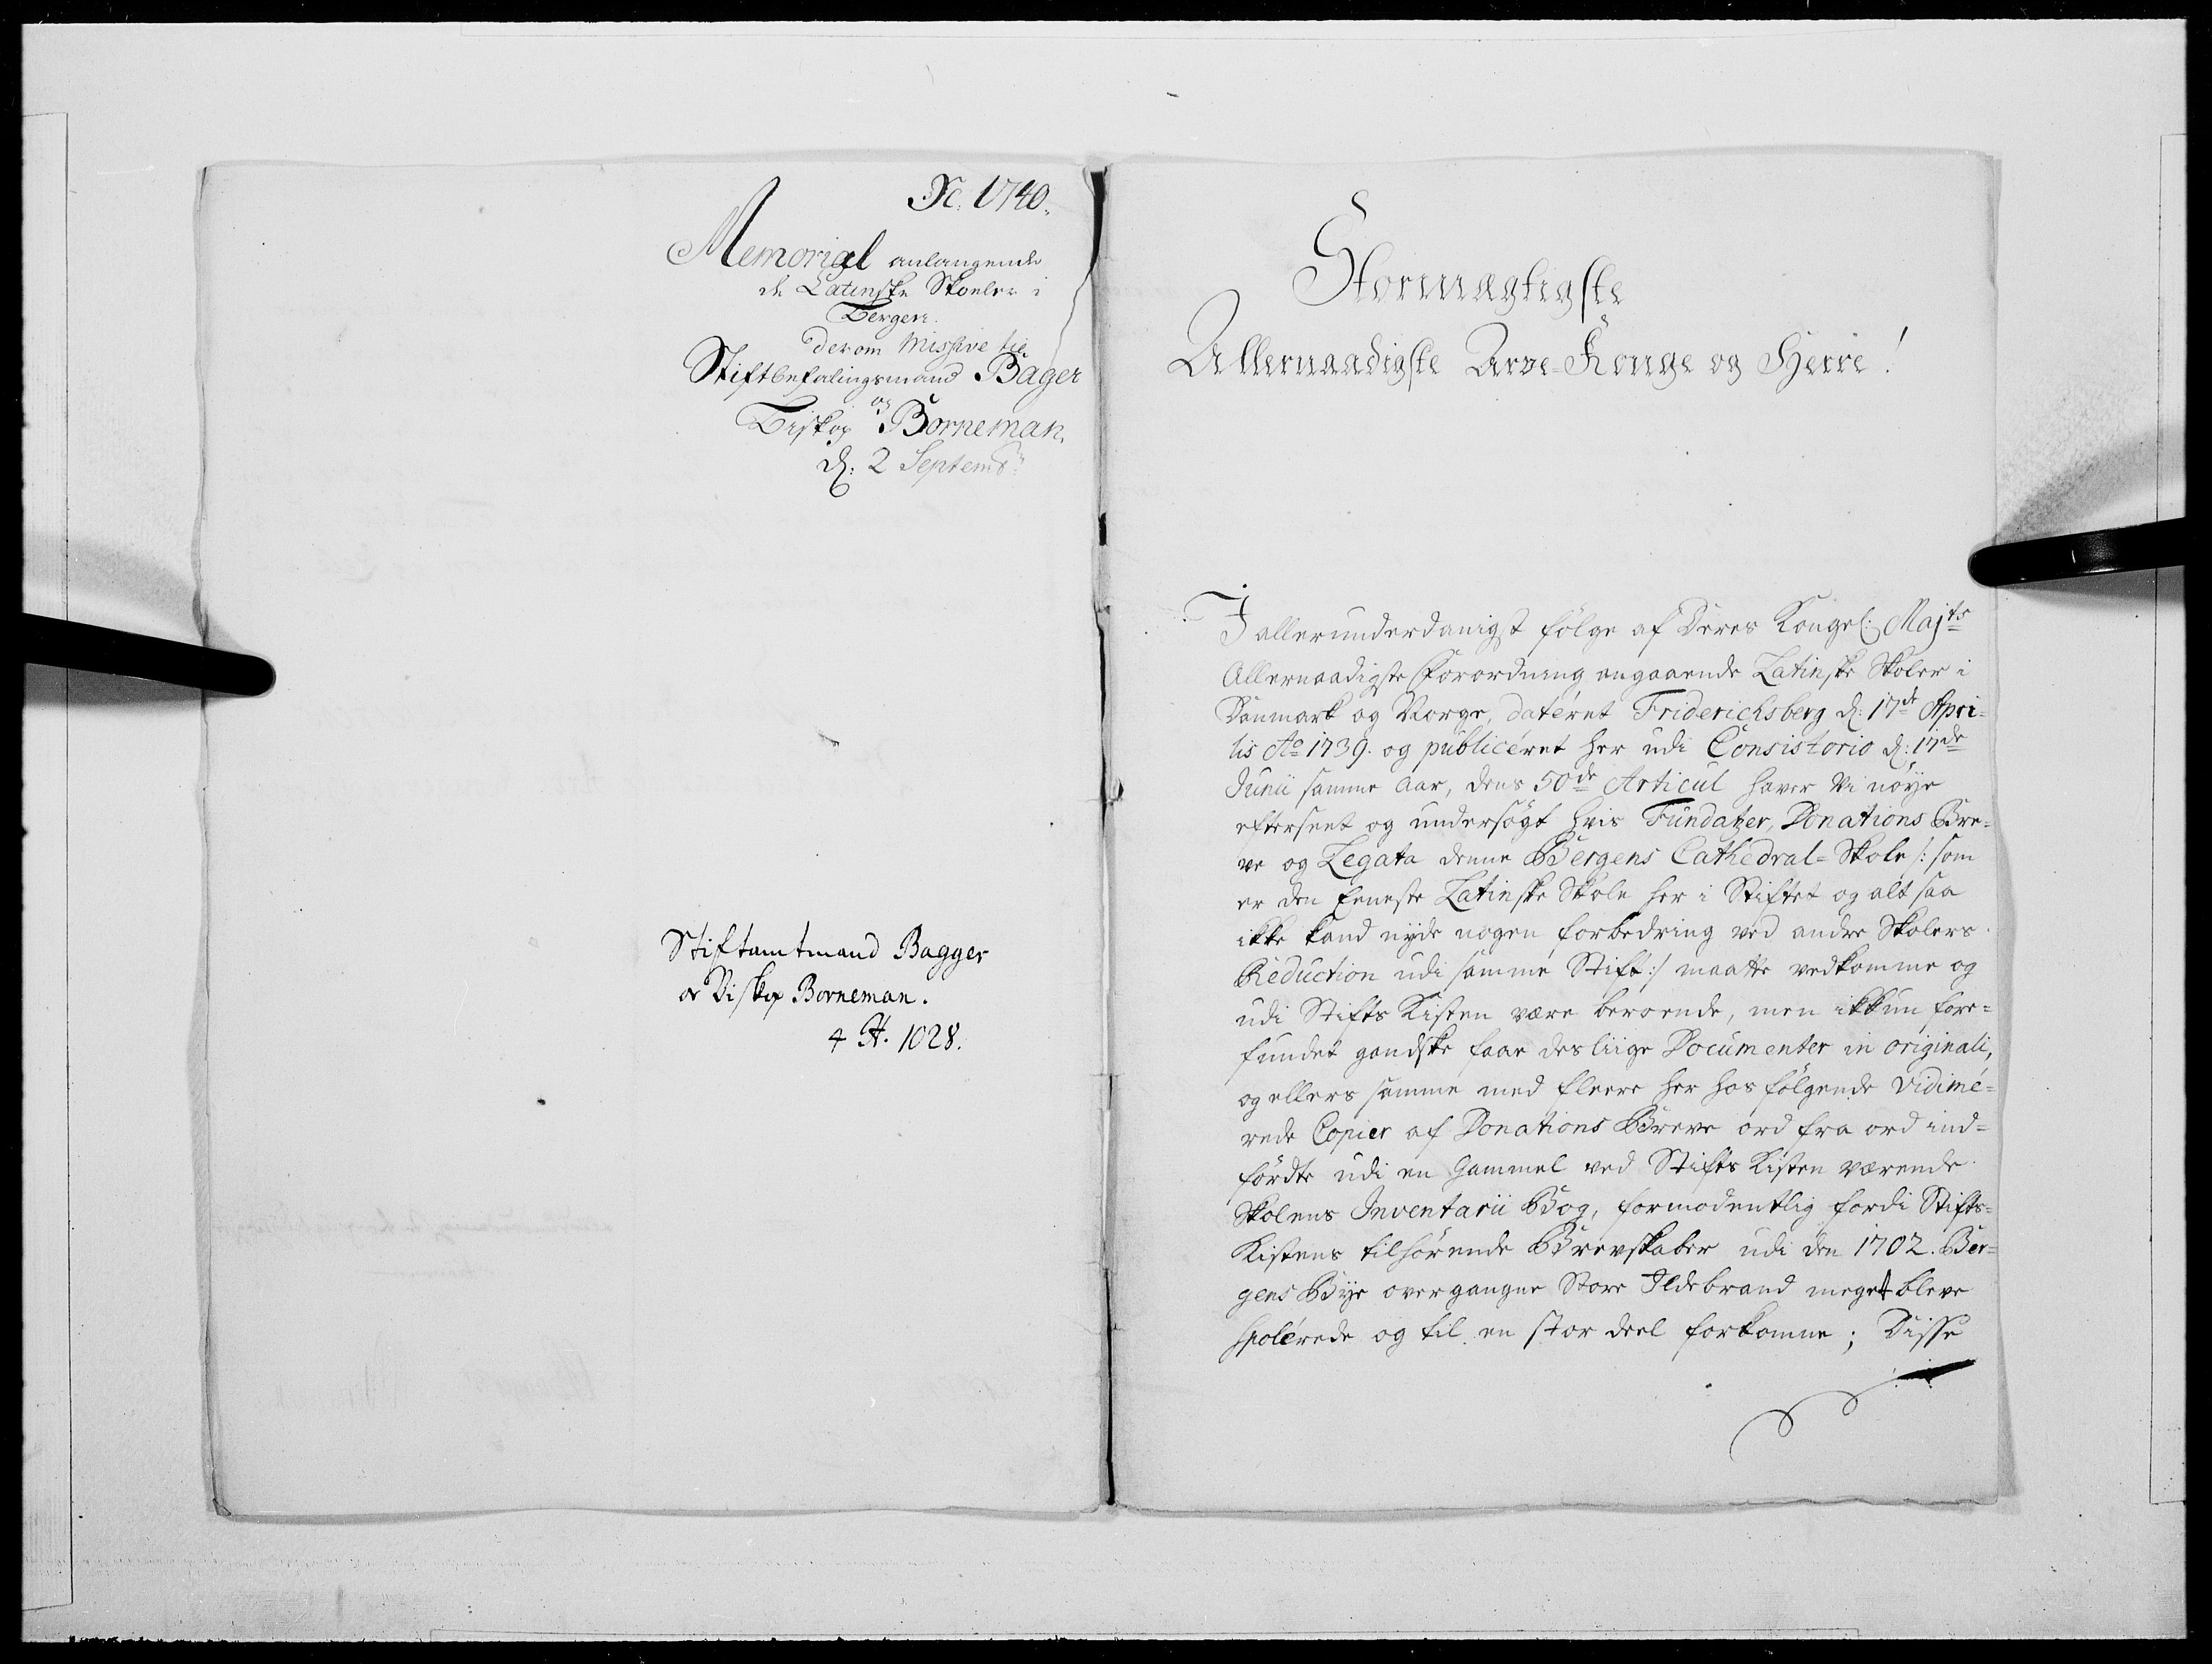 Xc. 1740.
Memorial anlangende
de Latinske Skoeler i
Bergen.
derom Missive til
Stiftbefalingsmand Bager
og
Biskop Borneman.
d: 2 Septembr:
Stiftamtmand Bagger
og Biskop Borneman.
4 H. 1028.
Stormægtigste
Allernaadigste Arve-Konge og Herre!
I allerunderdanigst følge af Deres Kongel: Majts
Allernaadigste Forordning angaaende Latinske Skoler i
Danmark og Norge, datéret Friderichsberg d: 17de Apri=
lis Ao 1739. og publicéret her udi Consistorio d: 17de
Junii samme Aar, dens 50de Articul haver Vi nøye
efterseet og undersøgt hvis Fundatzer, Donations Bre=
ve og Legata denne Bergens Cathedral=Skole /: som
er den Eeneste Latinske Skole her i Stiftet og alt saa
ikke kand nyde nogen forbedring ved andre Skolers
Reduction udi samme Stift :/ maatte vedkomme og
udi Stifts Kisten være beroende, men ikkun fore=
fundet gandske faae desliige Documenter in originali,
og ellers samme med fleere her hos følgende vidimé=
rede Copier af Donations Breve ord fra ord ind=
førdte udi en Gammel ved Stifts Kisten værende
Skolens Inventarii Bog, formodentlig fordi Stifts=
Kistens tilhørende Brevskaber udi den 1702. Ber=
gens Bye overgangne Store Ildebrand meget bleve
spolérede og til en stor deel forkomne; Disse